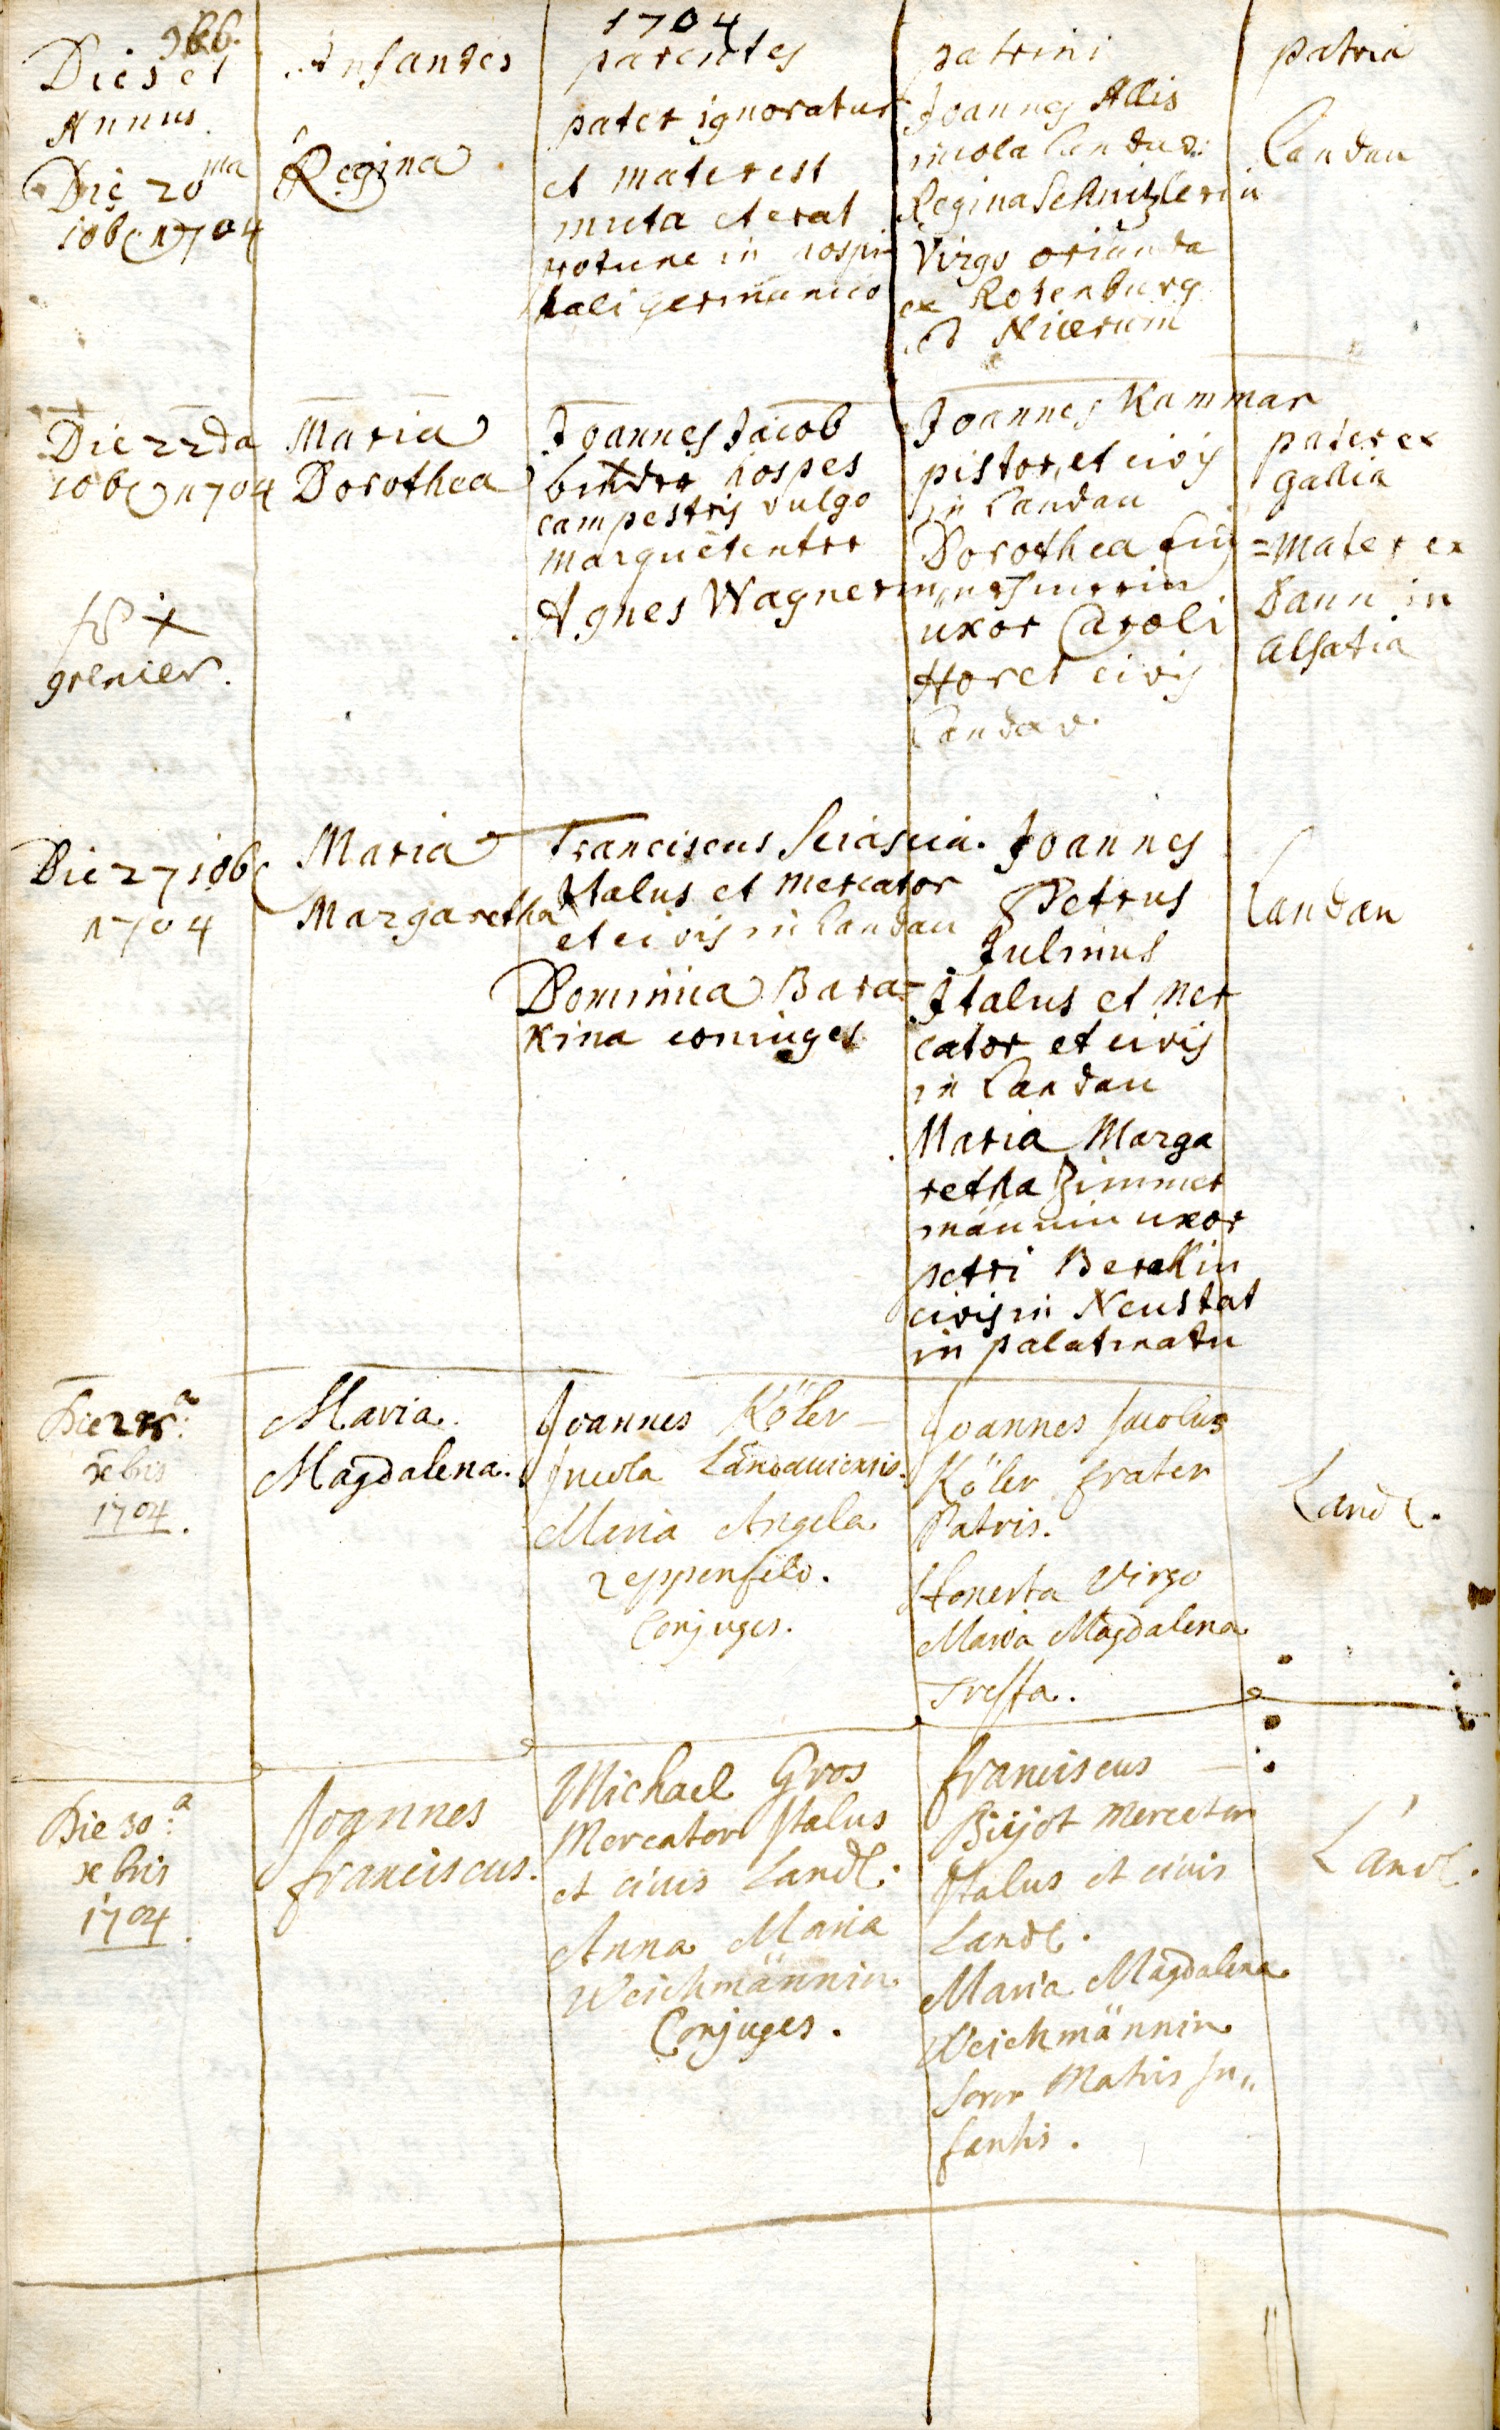 1704
Dies et
Annus
Infantes
parentes
patrini
patria
Die 20ma
10b(1704
Regina
pater ignoratur
et mater est
muta et erat
in hospi
tali germanico
Joannes Allis
incola Landau
Regina Schnitzlerin
Virgo oriunda
ex Rotenburg
Landau
Die 22da
10b(1704
grenier.
Maria
Dorothea
Joannes Jacob
binder hospes
campestris vulgo
marquetenter
Agnes Wagnerin
Joannes Kammar
pistor, et civis
in Landau
Dorothea
uxor Caroli
Horet civis
Landav.
pater ex
gallia
=mater ex
Dann in
alsatia
Die 27 10b(
1704
Maria
Margaretha
Franciscus Sciascia.
Italus et mercator
et civis in Landau
Dominica Bara=
kina coniuges
Joannes
Petrus
Julinus
Italus et mer
cator et civis
in Landau
Maria Marga
retha Zimmer
männin uxor
petri Berekin
civis in Neustat
in palatinatu
Landau
xbris
1704.
Maria.
Magdalena.
Joannes Köler
Incola Landauiensis.
Maria Angela
Zeppenfeld.
Conjuges.
Joannes Jacobus
Köler frater
Patris.
Honesta Virgo
Maria Magdalena
Tressa.
Land.
Die 30.a
xbris
1704.
Joannes
franciscus.
Michael Gros
Mercator Italus
et ciuis Land.
Anna Maria
Weichmännin
Conjuges.
franciscus
Bijot mercator
Italus et ciuis
Land.
Maria Magdalena
Weichmännin
soror Matris In„
fantis.
Land.